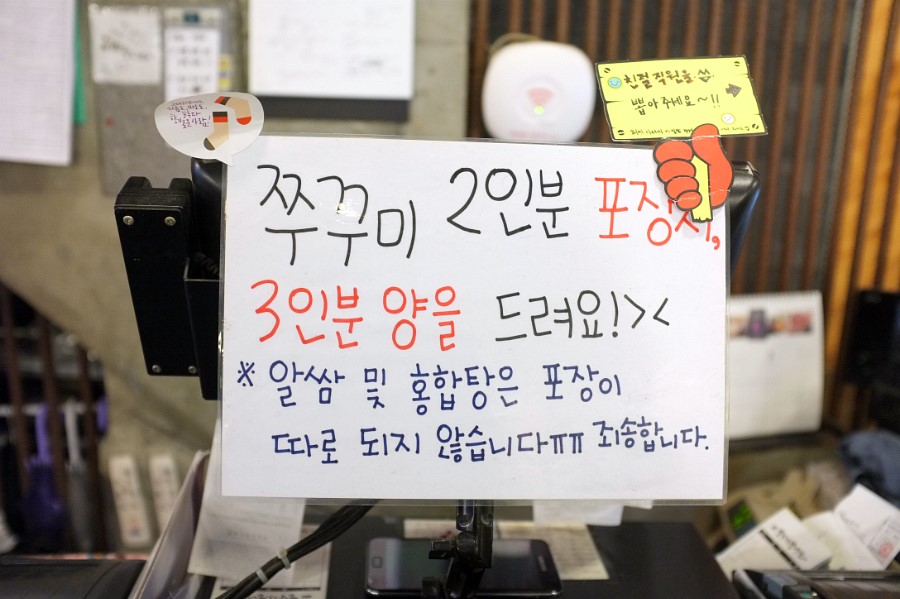 친절 직원을
뽑아 주세요~!!
쭈꾸미 2인분 포장시,
3인분 양을 드려요!><
※ 알쌈 및 홍합탕은 포장이
따로 되지 않습니다ㅠㅠ 죄송합니다.